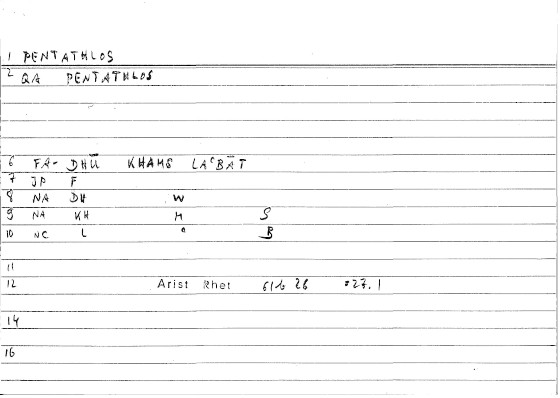 1 PENTATHLOS
2 QA PENTATHLOS
6 FA- DHŪ KHAMS LAʿBĀT
7 JP F
8 NA DH W
9 NA KH M S
10 NC L ʿ B
11
12 Arist Rhet 61b 26 =27.1
14
16